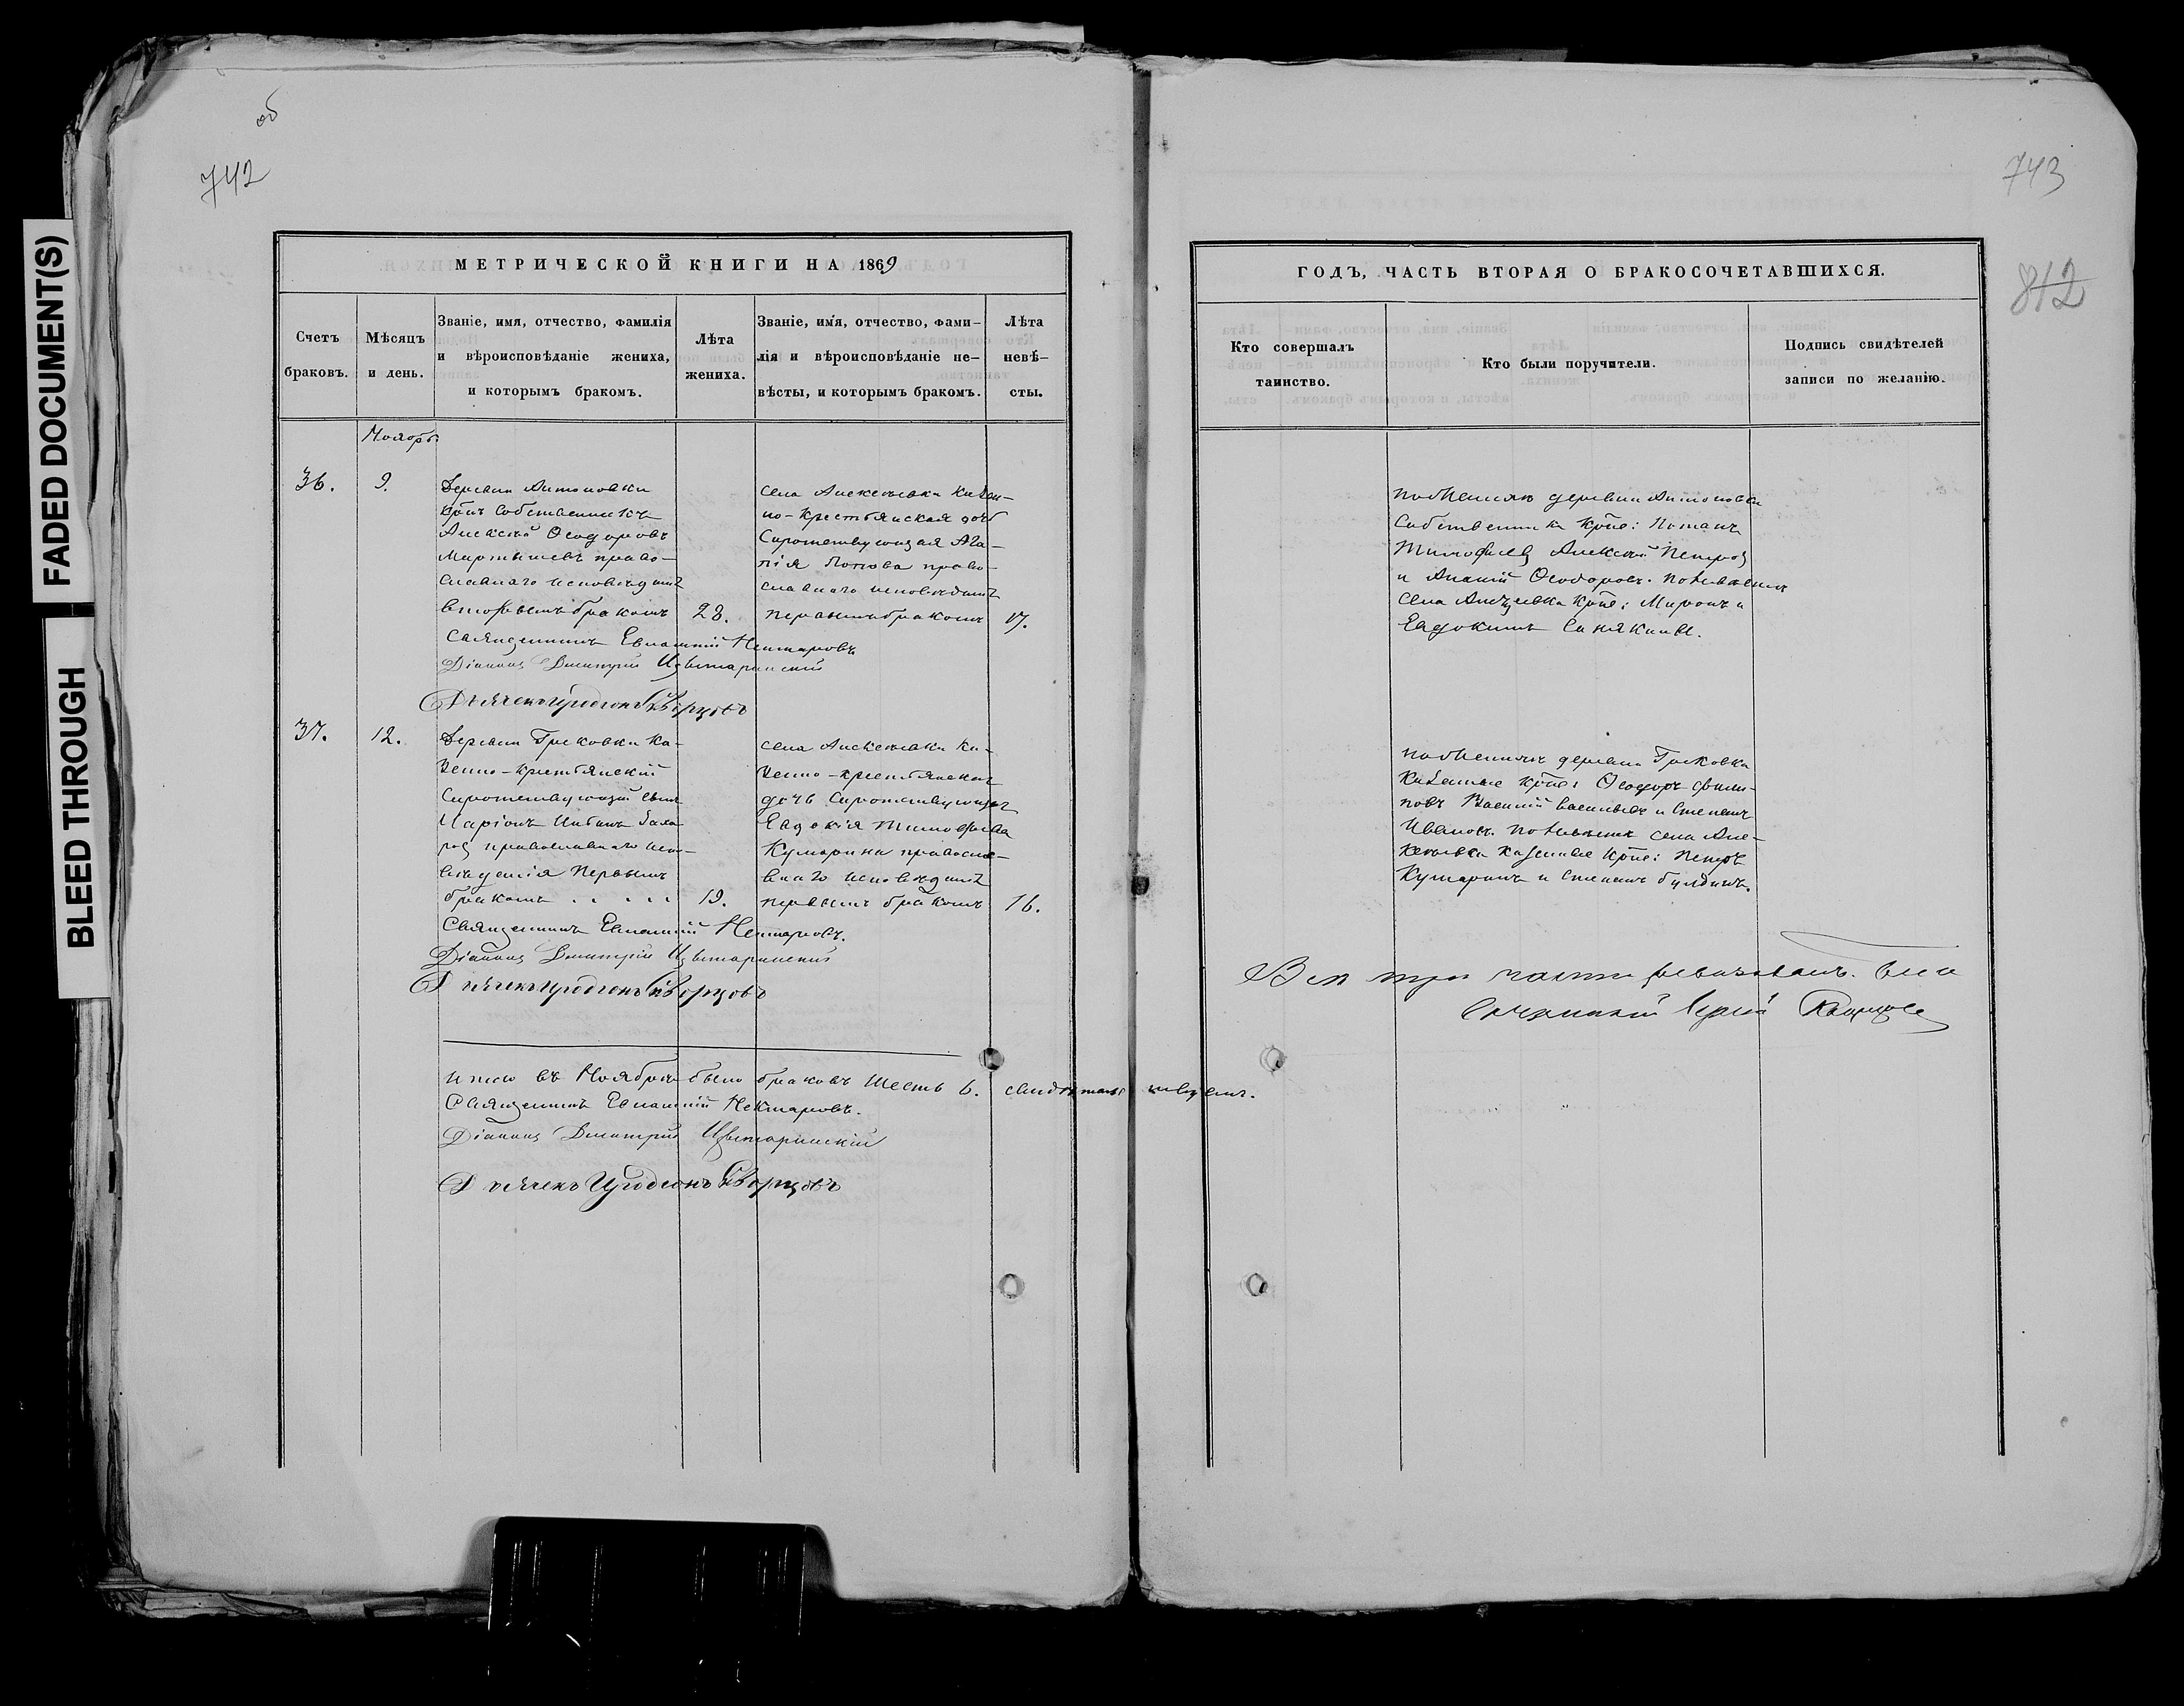 FADED DOCUMENT(S)
BLEED THROUGH
об
742
МЕТРИЧЕСКОЙ КНИГИ НА 1869
Счетъ браковъ.
Мѣсяцъ и день.
Званіе, имя, отчество, фамилія
и вѣроисповѣданіе жениха,
и которымъ бракомъ.
Лѣта жениха.
Званіе, имя, отчество, фами-
лія и вѣроисповѣданіе не-
вѣсты, и которымъ бракомъ.
Лѣта невѣ-
сты.
Ноябрь
36.
9.
Деревни Антоновки
Собственникъ
Алексѣй Ѳеодоровъ
Мартышевъ право-
славнаго исповѣданія
вторымъ бракомъ
28.
села Алексѣевки казен-
но-крестьянская дочь
Сиротствующая Ага-
пія Попова право-
славнаго исповѣданія
первымъ бракомъ
17.
Священникъ Евлампій Нектаровъ
Діаконъ Дмитрій Цвѣтаринскій
Дьячекъ Иродіонъ Скворцовъ
37.
12.
Деревни Грековки ка-
зенно-крестьянскій
Сиротствующій сынъ
Иларіонъ
православнаго испо-
вѣданія первымъ
бракомъ . . . . .
19.
села Алексѣевки ка-
зенно-крестьянская
дочь Сиротствующая
Евдокія Тимофѣева
Кумарина правосла-
внаго исповѣданія
первымъ бракомъ
16.
Священникъ Евлампій Нектаровъ.
Діаконъ Дмитрій Цвѣтаринскій
Дьячекъ Иродіонъ Скворцовъ
Итого въ Ноябрѣ было браковъ шесть 6. свидѣтельствуемъ.
Священникъ Евлампій Нектаровъ.
Діаконъ Дмитрій Цвѣтаринскій
Дьячекъ Иродіонъ Скворцовъ
743
812
ГОДЪ, ЧАСТЬ ВТОРАЯ О БРАКОСОЧЕТАВШИХСЯ.
Кто совершалъ
таинство.
Кто были поручители.
Подпись свидѣтелей
записи по желанію.
по женихѣ деревни Антоновки
Собственники Потапъ
Тимофеевъ Алексѣй Петровъ
и Ананій Ѳеодоровъ. по невѣстѣ
села Миронъ и
Евдокимъ Синякины.
по женихѣ деревни Грековки
казенные Ѳеодоръ Филип-
повъ Василій Васильевъ и Степанъ
Ивановъ. по невѣстѣ села Але-
ксѣевки казенные Петръ
Кумаринъ и Степанъ Булдинъ.
Всѣ три части
Сергѣй